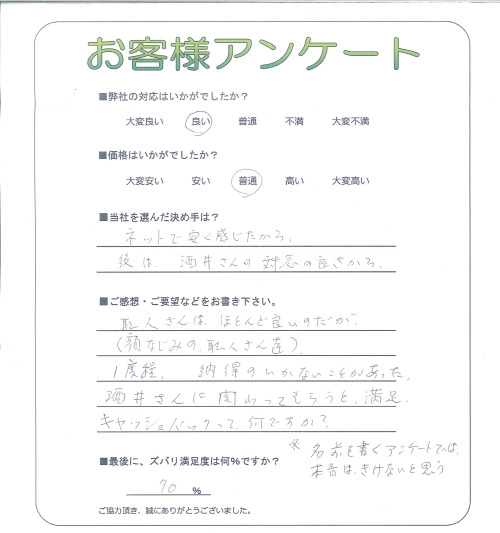 お客様アンケート
■弊社の対応はいかがでしたか？
大変良い 良い 普通 不満 大変不満
■価格はいかがでしたか？
大変安い 安い 普通 高い 大変高い
■当社を選んだ決め手は？
ネットで安く感じたから。
後は、酒井さんの対応の良さから。
■ご感想・ご要望などをお書き下さい。
職人さんは、ほとんど良いのだが、
(顔なじみの、職人さん達)
1度程、納得のいかないことがあった。
酒井さんに関わってもらうと、満足。
キャッシュバックって、何ですか？
※名前を書くアンケートでは、
本音は、きけないと思う
■最後に、ズバリ満足度は何%ですか？
70 %
ご協力頂き、誠にありがとうございました。